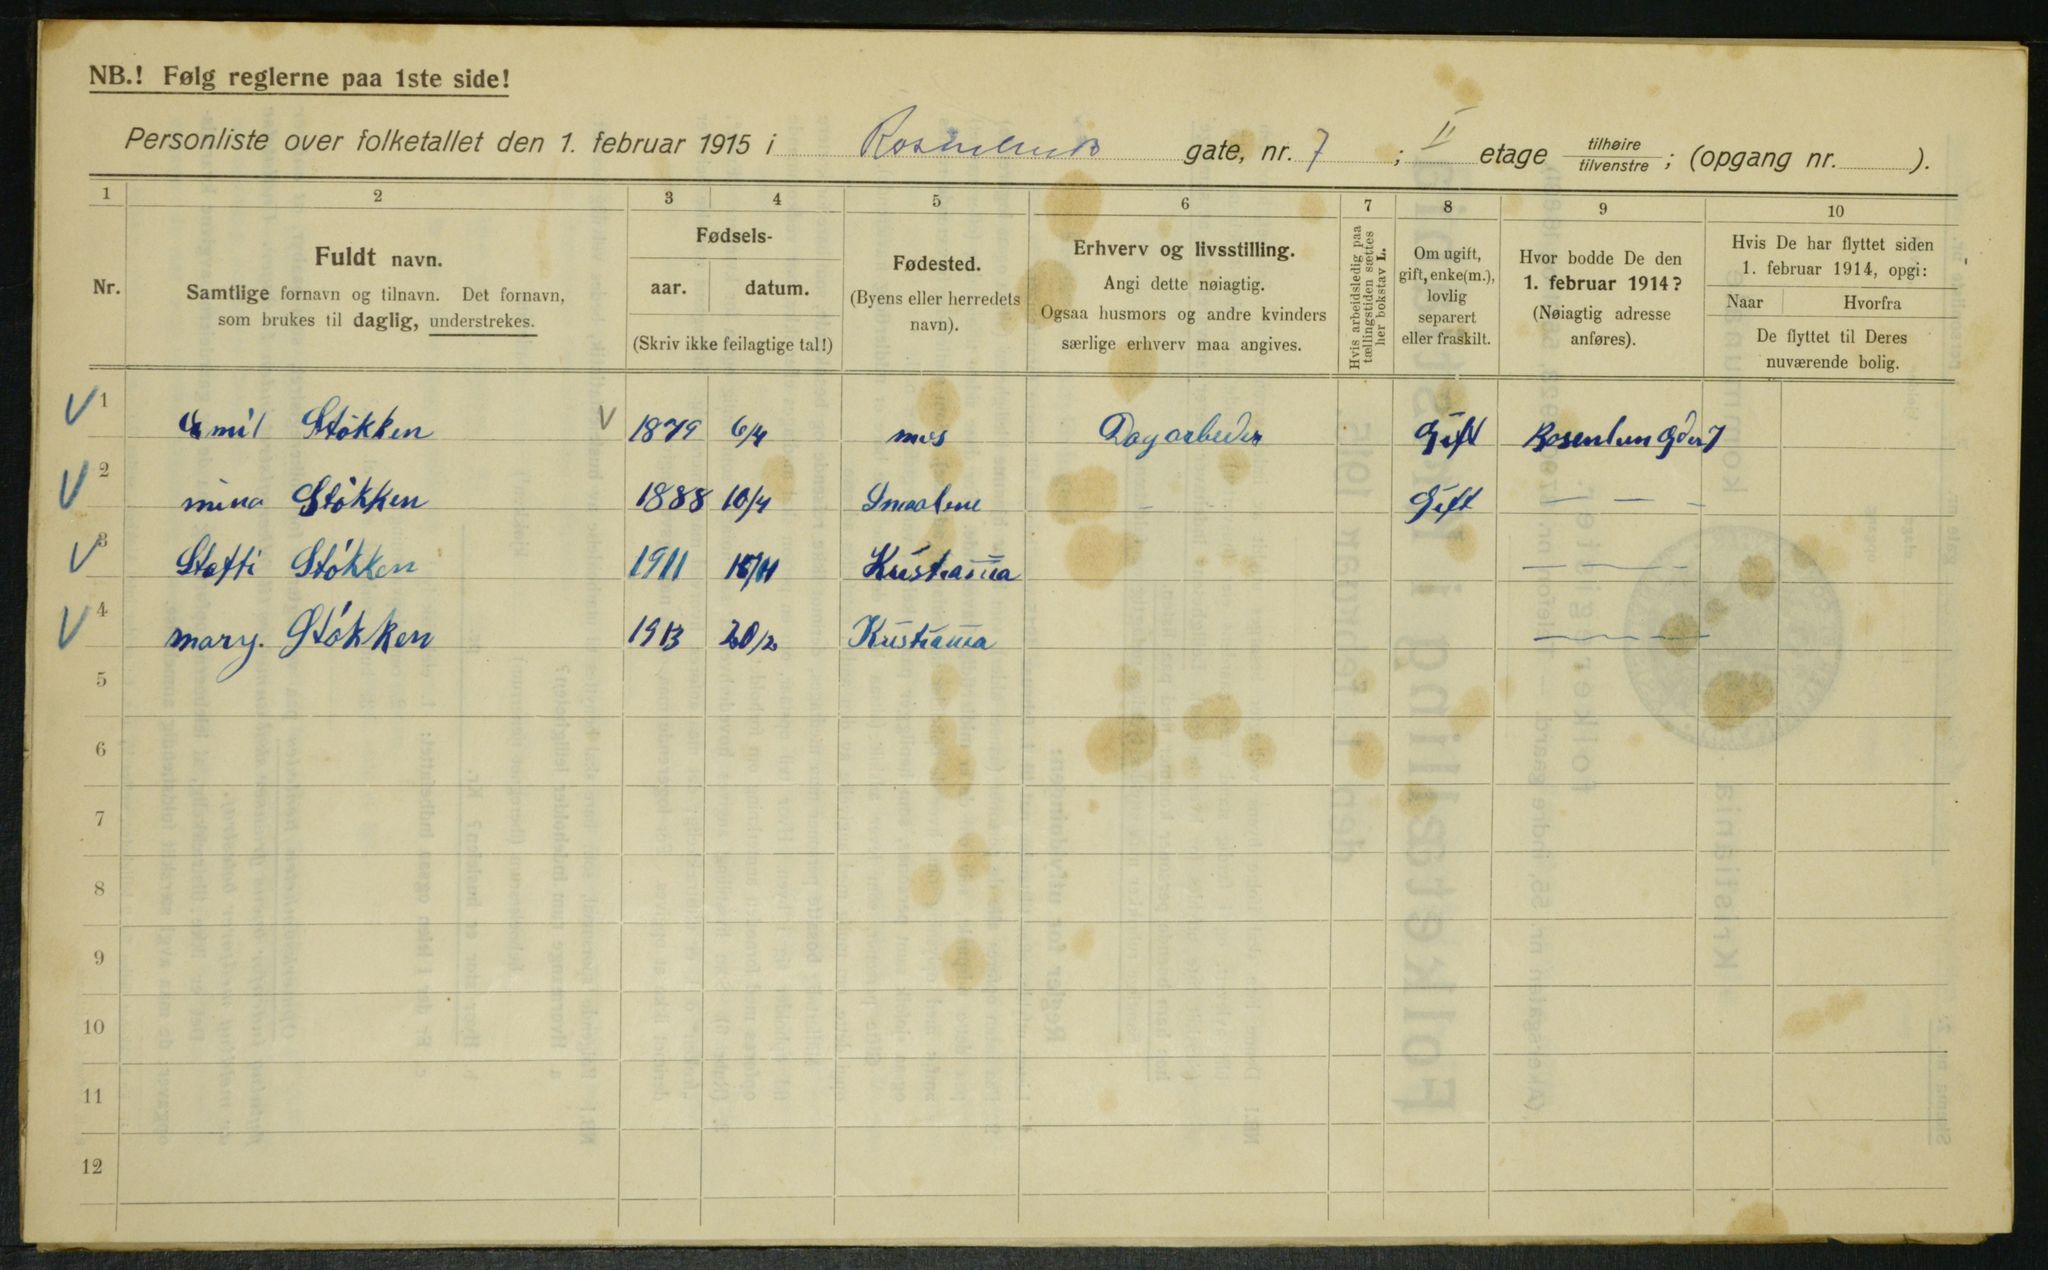 NB.! Følg reglerne paa 1ste side!
Personliste over folketallet den 1. februar 1915 i gate, nr. 7; II etage tilhøire tilvenstre; (opgang nr. ).
1 2 3 4 5 6 7 8 9 10
Nr.
Fuldt navn.
Samtlige fornavn og tilnavn. Det fornavn,
som brukes til daglig, understrekes.
Fødsels-
aar. datum.
(Skriv ikke feilagtige tal!)
Fødested.
(Byens eller herredets
navn).
Erhverv og livsstilling.
Angi dette nøiagtig.
Ogsaa husmors og andre kvinders
særlige erhverv maa angives.
Hvis arbeidsledig paa
tællingstiden sættes
her bokstav L.
Om ugift,
gift, enke(m.),
lovlig
separert
eller fraskilt.
Hvor bodde De den
1. februar 1914?
(Nøiagtig adresse
anføres).
Hvis De har flyttet siden
1. februar 1914, opgi:
Naar Hvorfra
De flyttet til Deres
nuværende bolig.
1 Emil Støkken 1879 6/4 mos Dagarbeder Gift
2 mina Støkken 1888 10/4 Smaalene Gift — — —
3 Støkken 1911 Kristiania — — —
4 mary. Støkken 1913 20/2 Kristiania — — —
5
6
7
8
9
10
11
12